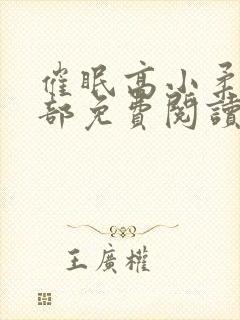 催眠高小柔
部免費閱讀
王廣權